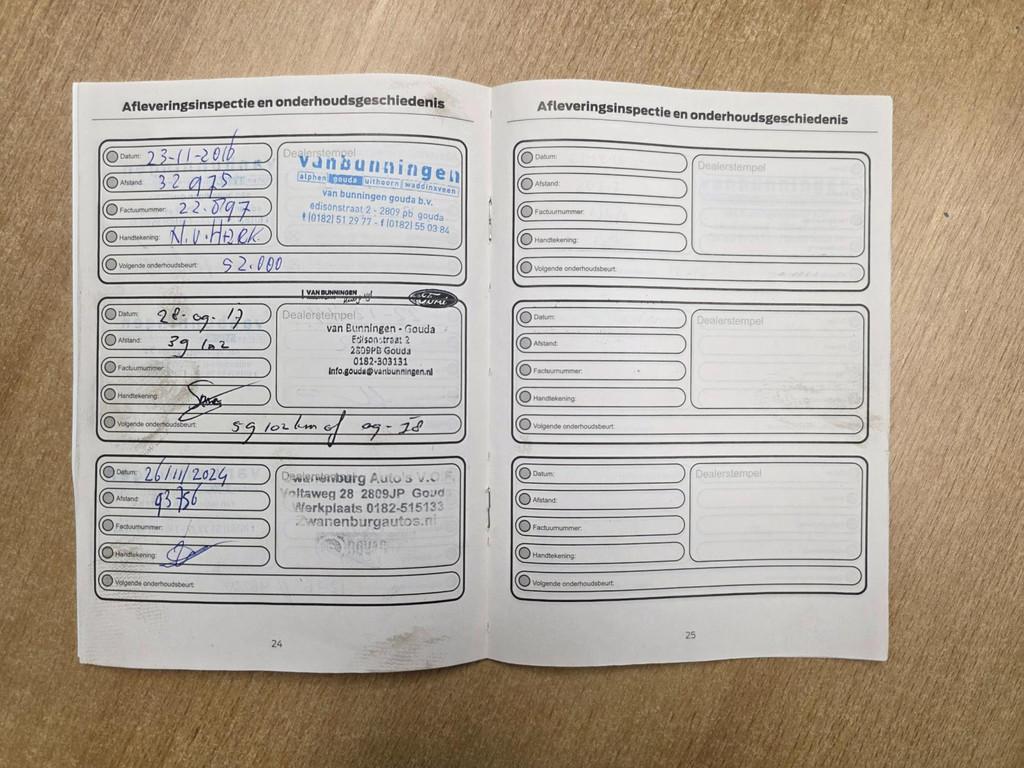 Afleveringsinspectie en onderhoudsgeschiedenis
Datum: 23-11-2016
Afstand: 32 975
Factuurnummer: 22.897
Handtekening: N.v.HERK
Volgende onderhoudsbeurt: 52.000
Dealerstempel
vanbunningen
alphen gouda uithoorn waddinxveen
van bunningen gouda b.v.
edisonstraat 2 - 2809 pb gouda
t (0182) 51 29 77 - f (0182) 55 03 84
Datum: 28-09-17
Afstand: 39 102
Factuurnummer:
Handtekening:
Volgende onderhoudsbeurt: 59 102 km of 09-18
VAN BUNNINGEN
Ford
Dealerstempel
van Bunningen - Gouda
Edisonstraat 2
2809PB Gouda
0182-303131
info.gouda@vanbunningen.nl
Datum: 26/11/2024
Afstand: 93756
Factuurnummer:
Handtekening:
Volgende onderhoudsbeurt:
Dealerstempel
Zwanenburg Auto's V.O.F.
Voltaweg 28 2809JP Goud
Werkplaats 0182-515133
Zwanenburgautos.nl
24
Afleveringsinspectie en onderhoudsgeschiedenis
Datum:
Afstand:
Factuurnummer:
Handtekening:
Volgende onderhoudsbeurt:
Dealerstempel
Datum:
Afstand:
Factuurnummer:
Handtekening:
Volgende onderhoudsbeurt:
Dealerstempel
Datum:
Afstand:
Factuurnummer:
Handtekening:
Volgende onderhoudsbeurt:
Dealerstempel
25